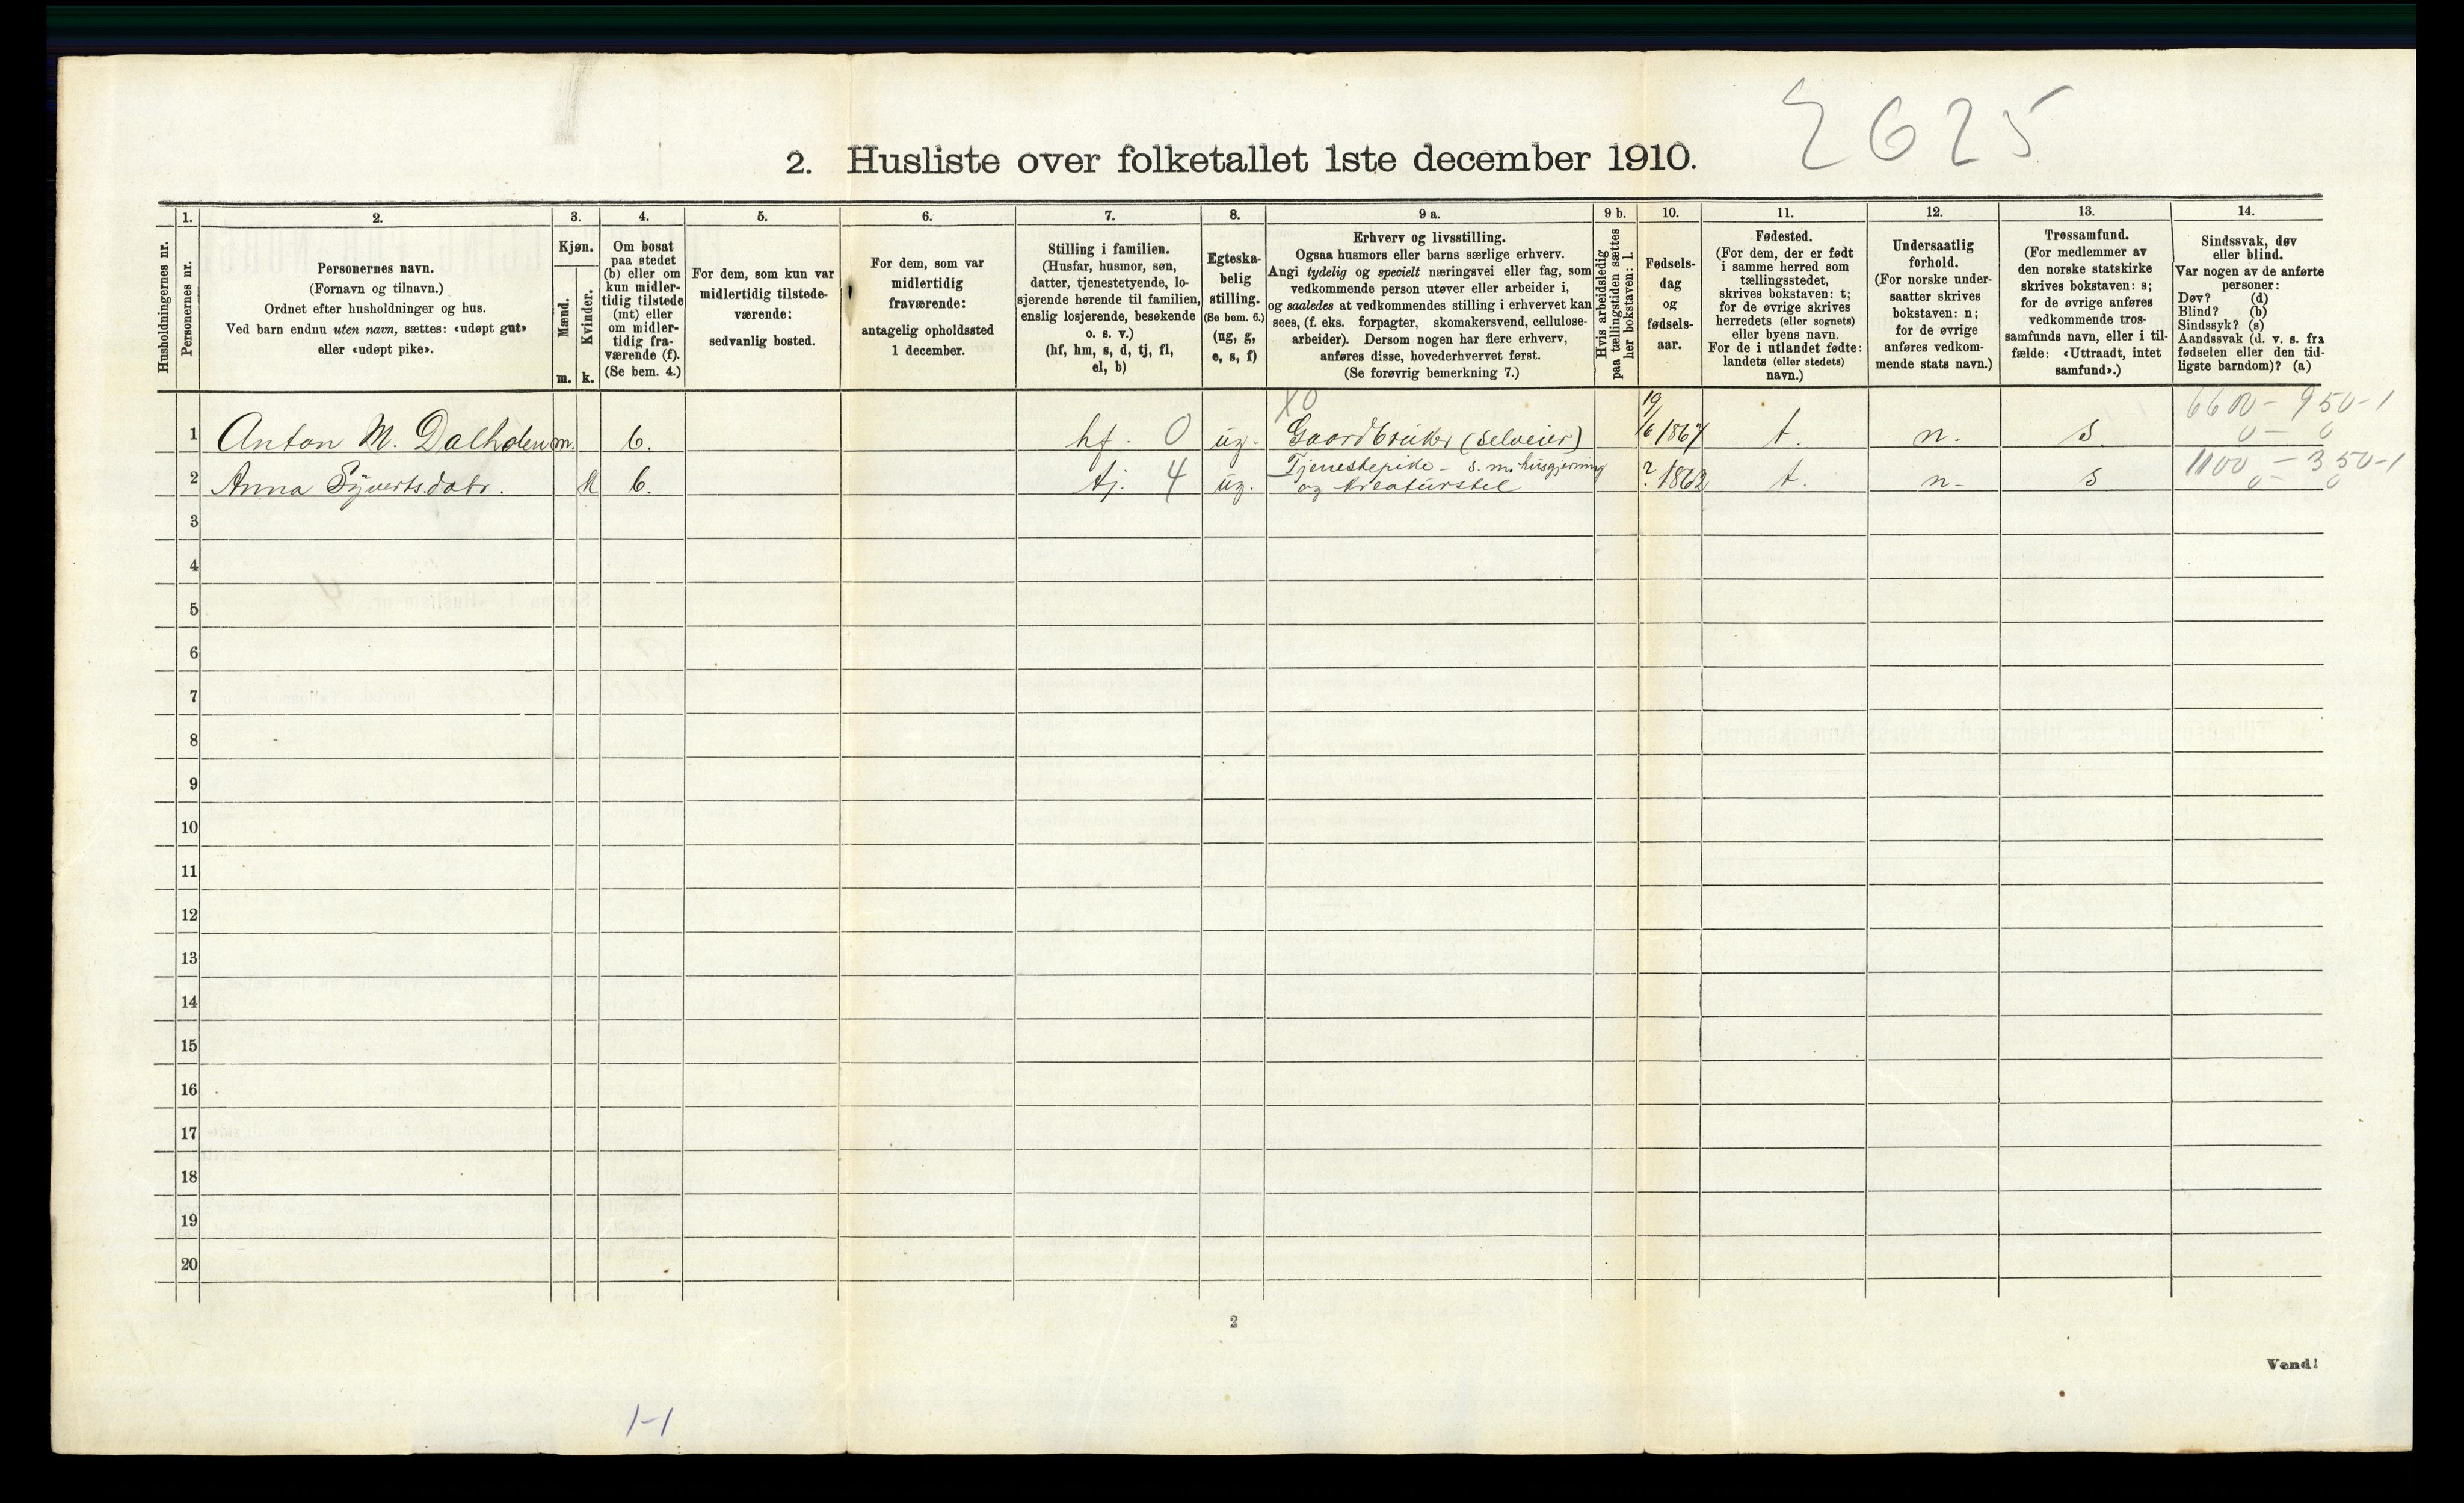 2625
2. Husliste over folketallet 1ste december 1910.
Husholdningernes nr.
1.
Personernes nr.
2.
Personernes navn.
(Fornavn og tilnavn.)
Ordnet efter husholdninger og hus.
Ved barn endnu uten navn, sættes: «udøpt gut»
eller «udøpt pike».
3.
Kjøn.
Mænd.
Kvinder.
m. k.
4.
Om bosat
paa stedet
(b) eller om
kun midler-
tidig tilstede
(mt) eller
om midler-
tidig fra-
værende (f).
(Se bem. 4.)
5.
For dem, som kun var
midlertidig tilstede-
værende:
sedvanlig bosted.
6.
For dem, som var
midlertidig
fraværende:
antagelig opholdssted
1 december.
7.
Stilling i familien.
(Husfar, husmor, søn,
datter, tjenestetyende, lo-
sjerende hørende til familien,
enslig losjerende, besøkende
o. s. v.)
(hf, hm, s, d, tj, fl,
el, b)
8.
Egteska-
belig
stilling.
(Se bem. 6.)
(ug, g,
e, s, f)
9 a.
Erhverv og livsstilling.
Ogsaa husmors eller barns særlige erhverv.
Angi tydelig og specielt næringsvei eller fag, som
vedkommende person utøver eller arbeider i,
og saaledes at vedkommendes stilling i erhvervet kan
sees, (f. eks. forpagter, skomakersvend, cellulose-
arbeider). Dersom nogen har flere erhverv,
anføres disse, hovederhvervet først.
(Se forøvrig bemerkning 7.)
9 b.
Hvis arbeidsledig
paa tællingstiden sættes
her bokstaven: l.
10.
Fødsels-
dag
og
fødsels-
aar.
11.
Fødested.
(For dem, der er født
i samme herred som
tællingsstedet,
skrives bokstaven: t;
for de øvrige skrives
herredets (eller sognets)
eller byens navn.
For de i utlandet fødte:
landets (eller stedets)
navn.)
12.
Undersaatlig
forhold.
(For norske under-
saatter skrives
bokstaven: n;
for de øvrige
anføres vedkom-
mende stats navn.)
13.
Trossamfund.
(For medlemmer av
den norske statskirke
skrives bokstaven: s;
for de øvrige anføres
vedkommende tros-
samfunds navn, eller i til-
fælde: «Uttraadt, intet
samfund».)
14.
Sindssvak, døv
eller blind.
Var nogen av de anførte
personer:
Døv? (d)
Blind? (b)
Sindssyk? (s)
Aandssvak (d. v. s. fra
fødselen eller den tid-
ligste barndom)? (a)
X0 19 6600 - 950-1
1 Anton M. Dalholen m. b. hf. 0 ug. Gaardbruker (selveier) /6 1867 t. n. s. 0 - 0
Tjenestepike - s. m. husgjerning 1100 - 350-1
2 Anna Syvertsdatr. k b. tj. 4 ug. og kreaturstel ? 1862 t. n- s 0 - 0
3
4
5
6
7
8
9
10
11
12
13
14
15
16
17
18
19
20
2
Vend!
1-1